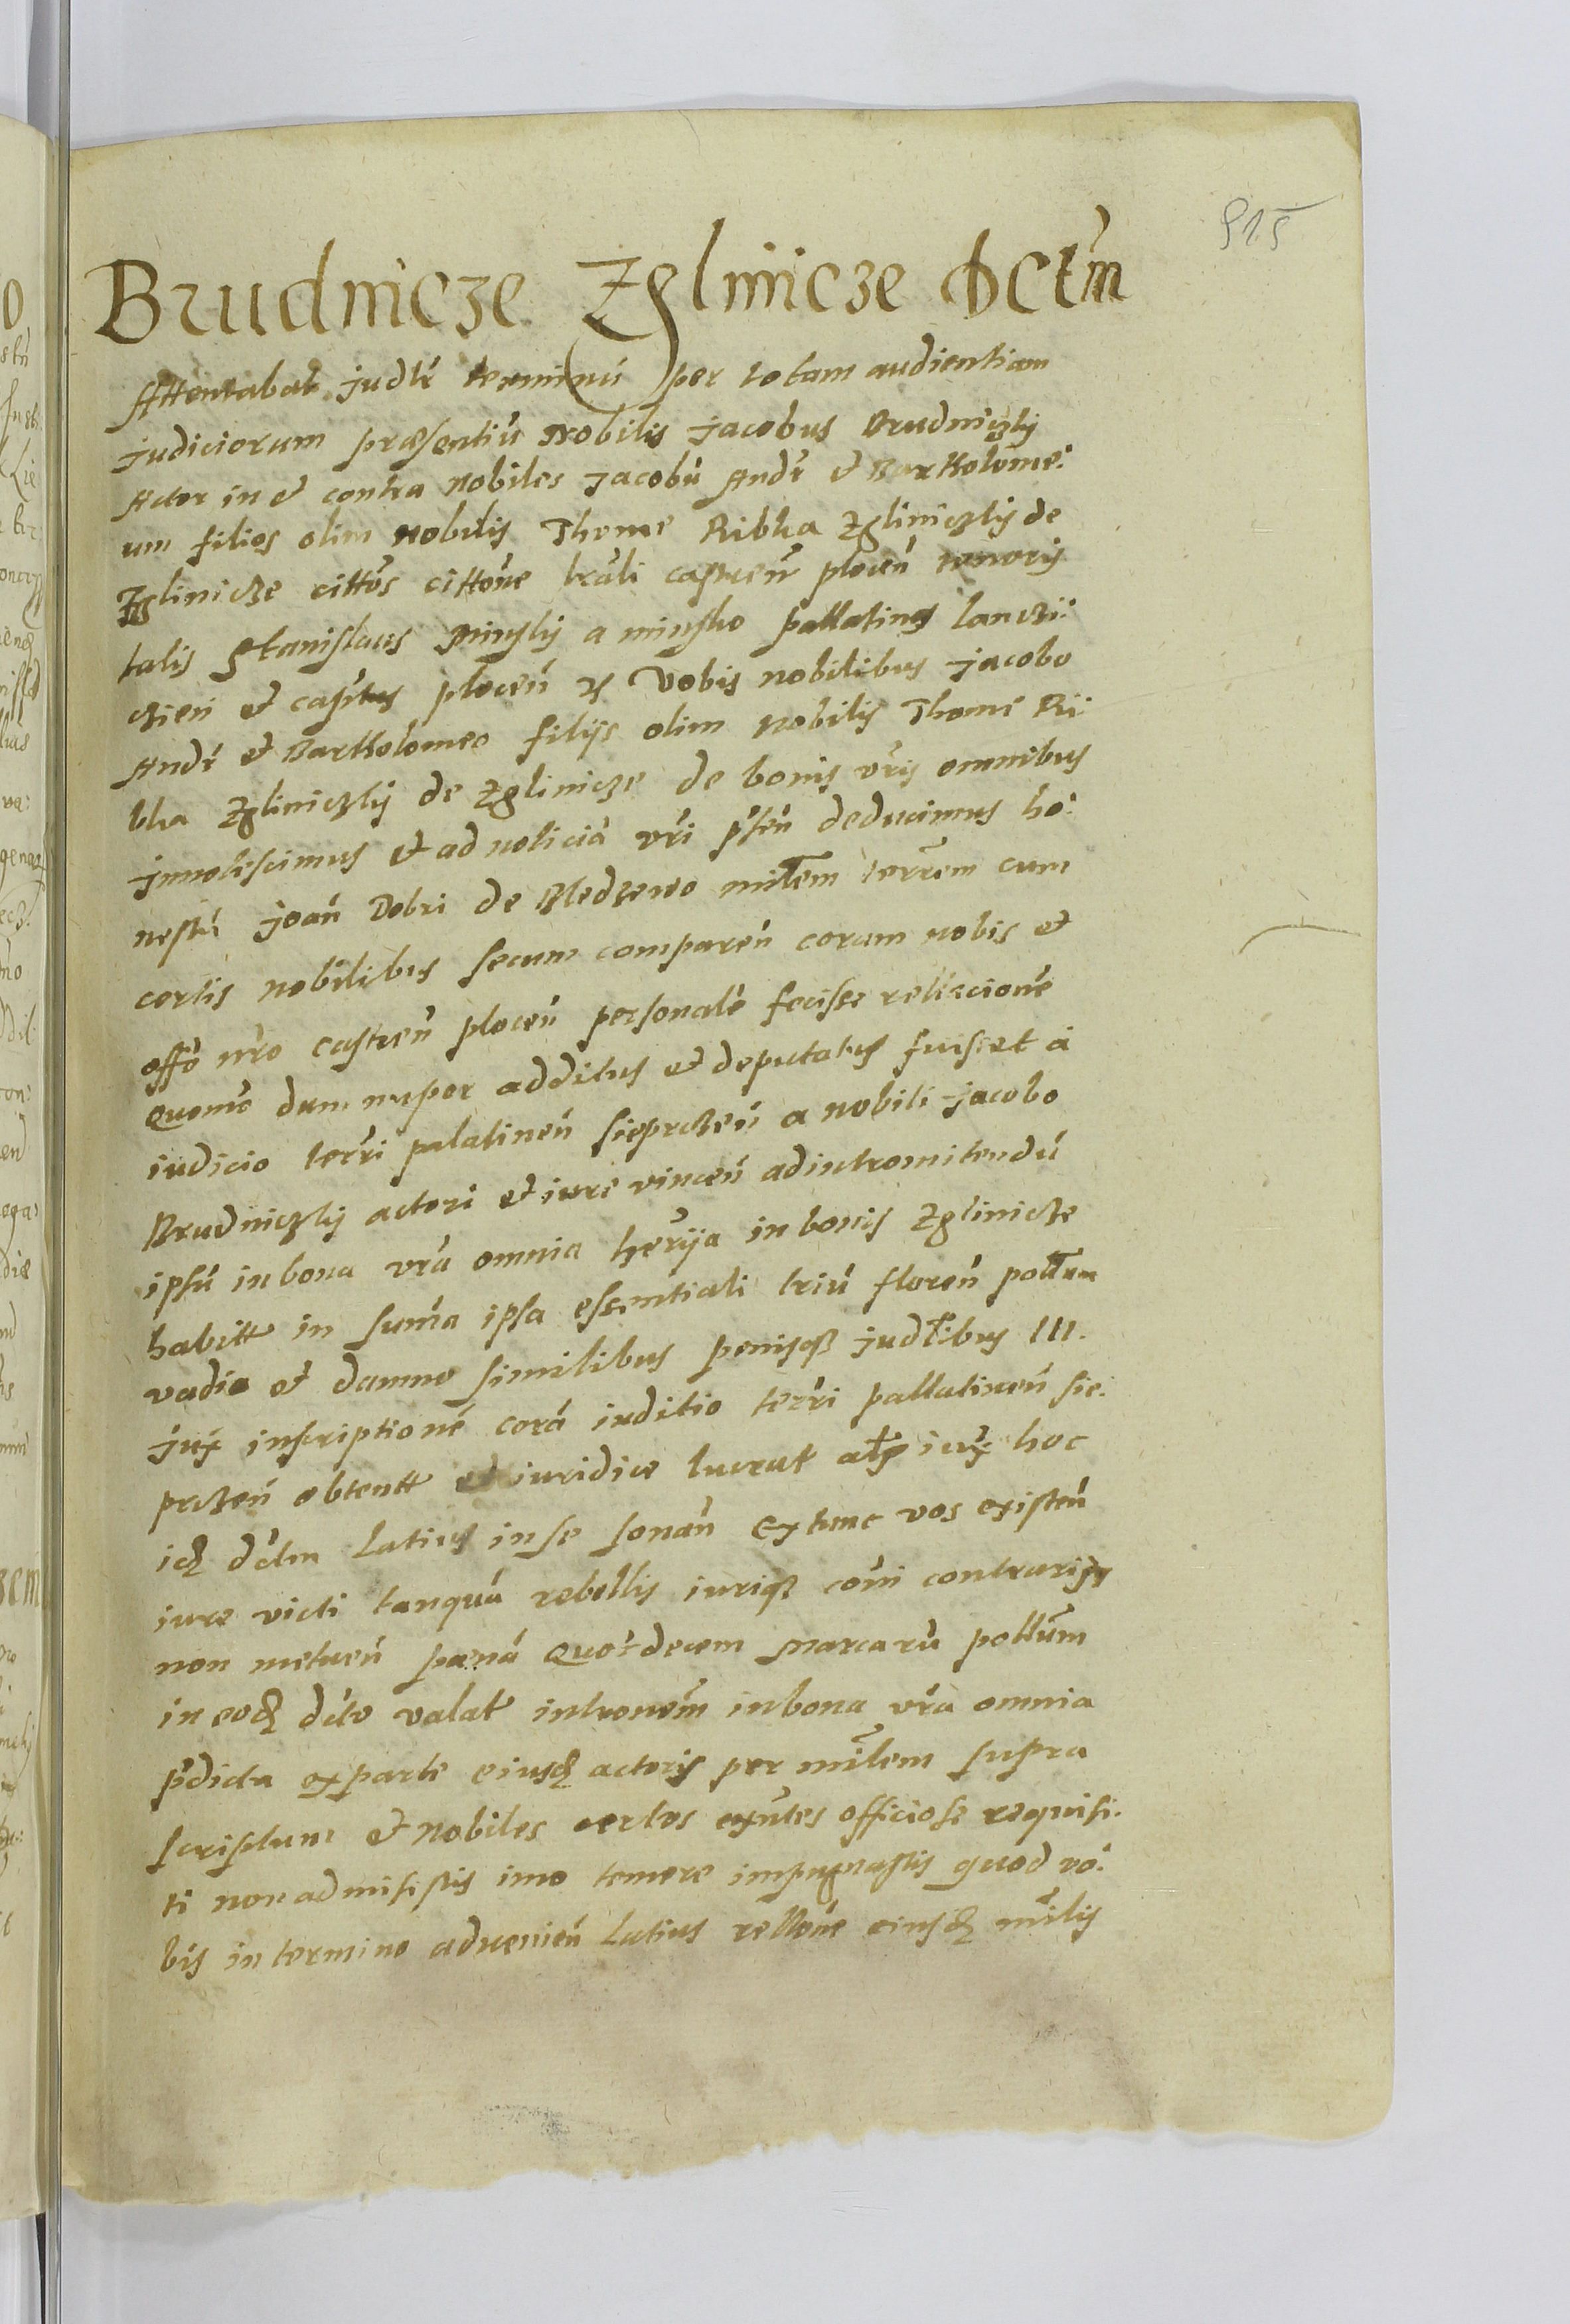 515
Brudnicze Zglinicze Dctm̃
Attentabat judlr̃ terminũ per totam audientiam
judiciorum præsentiũ Nobilis jacobus Brudniczky
Actor in et contra nobiles jacobũ Andr̃ et Bartholome:
um filios olim nobilis Thome Ribka Zgliniczkij de
Zglinicze cittõs cittõne lrãli castreñ ploceñ tenoris
talis Stanislaus Minsky a minsko pallatinus lanczi:
czieñ et capitus ploceñ Vobis nobilibus jacobo
Andr̃ et Bartholomeo filijs olim nobilis Thome Ri:
bka Zgliniczkij de Zglinicze de bonis vr̃is omnibus
jnnotescimus et ad noticiã vr̃i p̃teñ deducimus ho:
nestũ joañ Dobri de Bledzewo miltem terrem cum
certis nobilibus secum compareñ coram nobis et
offõ nr̃o castreñ ploceñ personalẽ fecisse rellacionẽ
Quomõ dum nuper additus et deputatus fuisset a
iudicio terr̃i palatineñ siepreczeñ a nobili jacobo
Brudniczkij actori et iure vinceñ ad intromitendũ
ipsũ in bona vr̃a omnia her̃ija in bonis Zglinicze
habitt in sum̃a ipsa essentiali triũ floreñ polttem
vadio et damno similibus penisq3 judlibus III.
jux̃ inscriptionẽ corã iuditio terr̃i pallatineñ sie:
preczeñ obtentt et iuridice lucrat jux̃ hoc
id dc̃tm latius in se sonañ Ex tunc vos existeñ
iure victi tanquã rebellis iuriq3 cõni contrarij
non metueñ pænã Quot:decem marcarũ poltt̃m
in eod dc̃to valat̃ intronem̃ in bona vr̃a omnia
p̃dicta ex parte eiusd actoris per mil̃tem supra
scriptum et nobiles certos exñtes officiose requisi:
ti non admisistis imo temere impugnastis quod vo:
bis in termino advenieñ latius rellõne eiusd mil̃tis